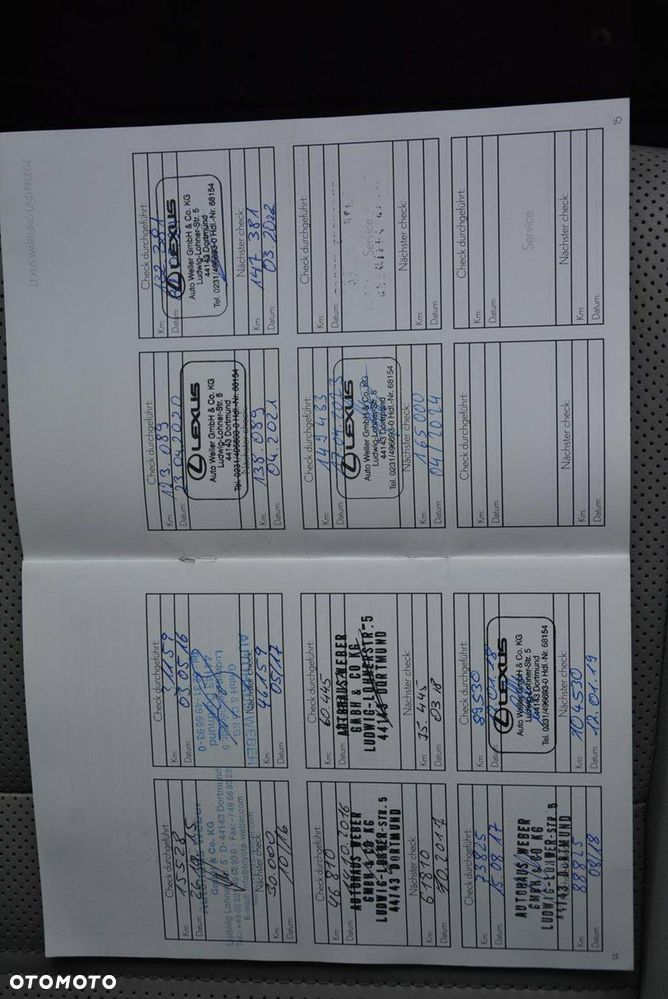 Check durchgeführt:
Km: 15528
Datum: 26.10.15
GmbH & Co. KG
D-44143 Dortmund
Nächster check:
Km: 30.000
Datum: 10/16
Check durchgeführt:
Km: 31159
Datum: 03.05.16
AUTOHAUS WEBER
GmbH & Co. KG
Nächster check:
Km: 46159
Datum: 05/17
Check durchgeführt:
Km: 46810
Datum: 14.10.2016
AUTOHAUS WEBER
GMBH & CO KG
LUDWIG-LOHNER-STR.5
44143 DORTMUND
Nächster check:
Km: 61810
Datum: 10.2017
Check durchgeführt:
Km: 60445
Datum:
AUTOHAUS WEBER
GMBH & CO KG
LUDWIG-LOHNER-STR.5
44143 DORTMUND
Nächster check:
Km: 75.445
Datum: 03 18
Check durchgeführt:
Km: 73825
Datum: 15.08.17
AUTOHAUS WEBER
GMBH & CO KG
LUDWIG-LOHNER-STR.5
44143 DORTMUND
Nächster check:
Km: 88825
Datum: 08/18
Check durchgeführt:
Km: 89530
Datum:
LEXUS
Auto Weller GmbH & Co. KG
Ludwig-Lohner-Str. 5
44143 Dortmund
Tel. 0231/496693-0 Hdl.-Nr. 68154
Nächster check:
Km: 104530
Datum: 12.01.19
14
LEXUS WARTUNG UND PFLEGE
Check durchgeführt:
Km: 123 089
Datum: 23.04.2020
LEXUS
Auto Weller GmbH & Co. KG
Ludwig-Lohner-Str. 5
44143 Dortmund
Tel. 0231/496693-0 Hdl.-Nr. 68154
Nächster check:
Km: 138.089
Datum: 04.2021
Check durchgeführt:
Km: 132 381
Datum:
LEXUS
Auto Weller GmbH & Co. KG
Ludwig-Lohner-Str. 5
44143 Dortmund
Tel. 0231/496693-0 Hdl.-Nr. 68154
Nächster check:
Km: 147 381
Datum: 03 2022
Check durchgeführt:
Km: 149433
Datum:
LEXUS
Auto Weller GmbH & Co. KG
Ludwig-Lohner-Str. 5
44143 Dortmund
Tel. 0231/496693-0 Hdl.-Nr. 68154
Nächster check:
Km: 165000
Datum: 04/2024
Check durchgeführt:
Km:
Datum:
Service
Nächster check:
Km:
Datum:
Check durchgeführt:
Km:
Datum:
Nächster check:
Km:
Datum:
Check durchgeführt:
Km:
Datum:
Service
Nächster check:
Km:
Datum:
15
OTOMOTO